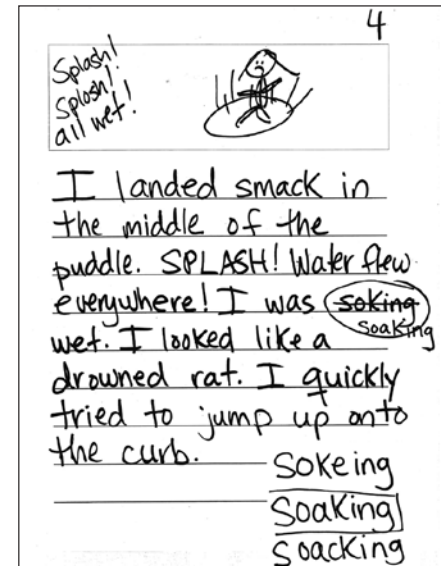 4
Splash!
Splosh!
all wet!
I landed smack in
the middle of the
puddle. SPLASH! Water flew
everywhere! I was soking
soaking
wet. I looked like a
drowned rat. I quickly
tried to jump up onto
the curb.
sokeing
soaking
soacking